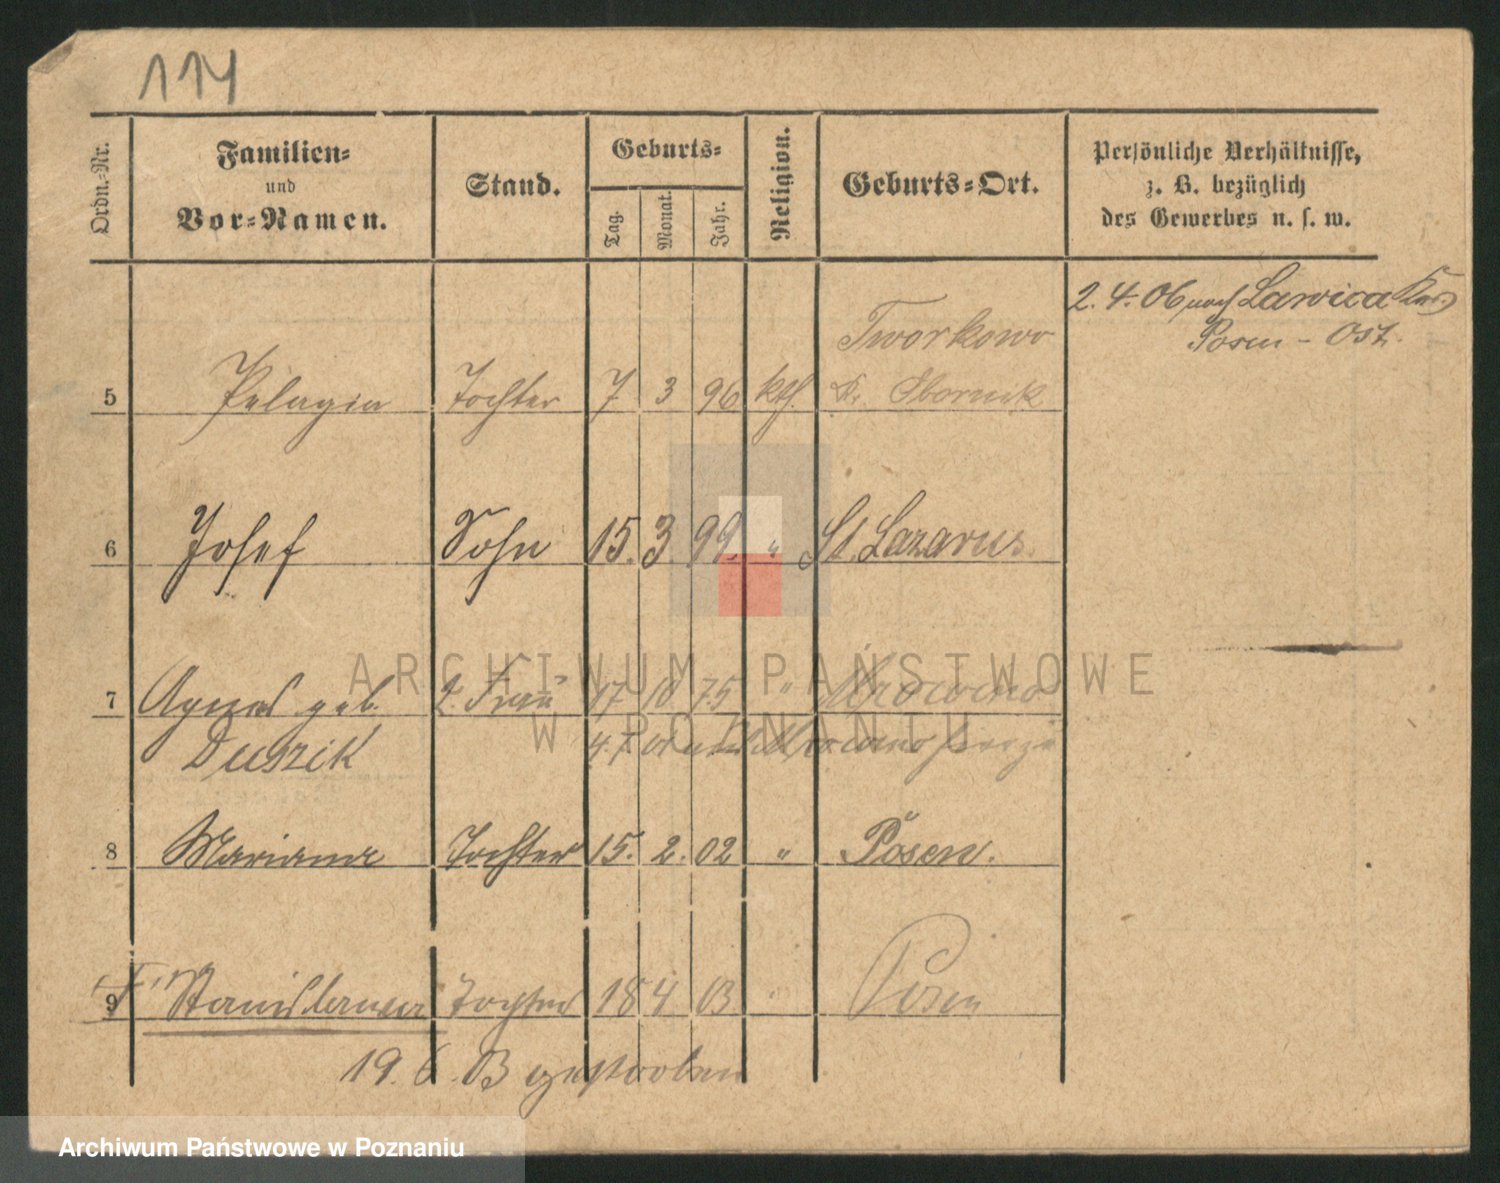 114
Ordn.-Nr.
Familien-
und
Vor-Namen.
Stand.
Geburts-
Tag.
Monat.
Jahr.
Religion.
Geburts-Ort.
Persönliche Verhältnisse,
z. B. bezüglich
des Gewerbes u. s. w.
2. 4. 06 nach Lawica
Posen - Ost.
Tworkowo
5 Pelagia Tochter 7 3 96 kth. Kr. Obornik
6 Josef Sohn 15. 3. 99. " St. Lazarus.
7 Agnes geb. 2. Frau 17 10 75 "
Duszik
8 Marianna Tochter 15. 2. 02 " Posen.
† 9 Stanislawa Tochter 18 4 03 " Posen
19. 6. 03 gestorben
ARCHIWUM PAŃSTWOWE
W POZNANIU
Archiwum Państwowe w Poznaniu